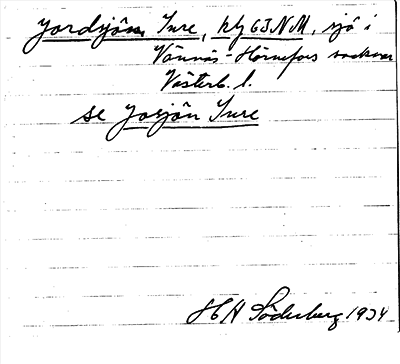 Jordsjön, Inre, kbl 63 NM, sjö i
Vännäs - Hörnefors socknar
Västerb. l.
se Josjön Inre
H H Söderberg 1934